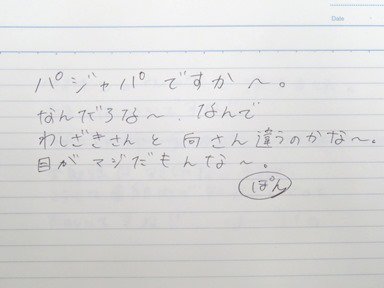 Date
パジャパですか〜。
なんだろな〜、なんで
わしざきさんと向さん違うのかな〜。
目がマジだもんな〜。
ぽん